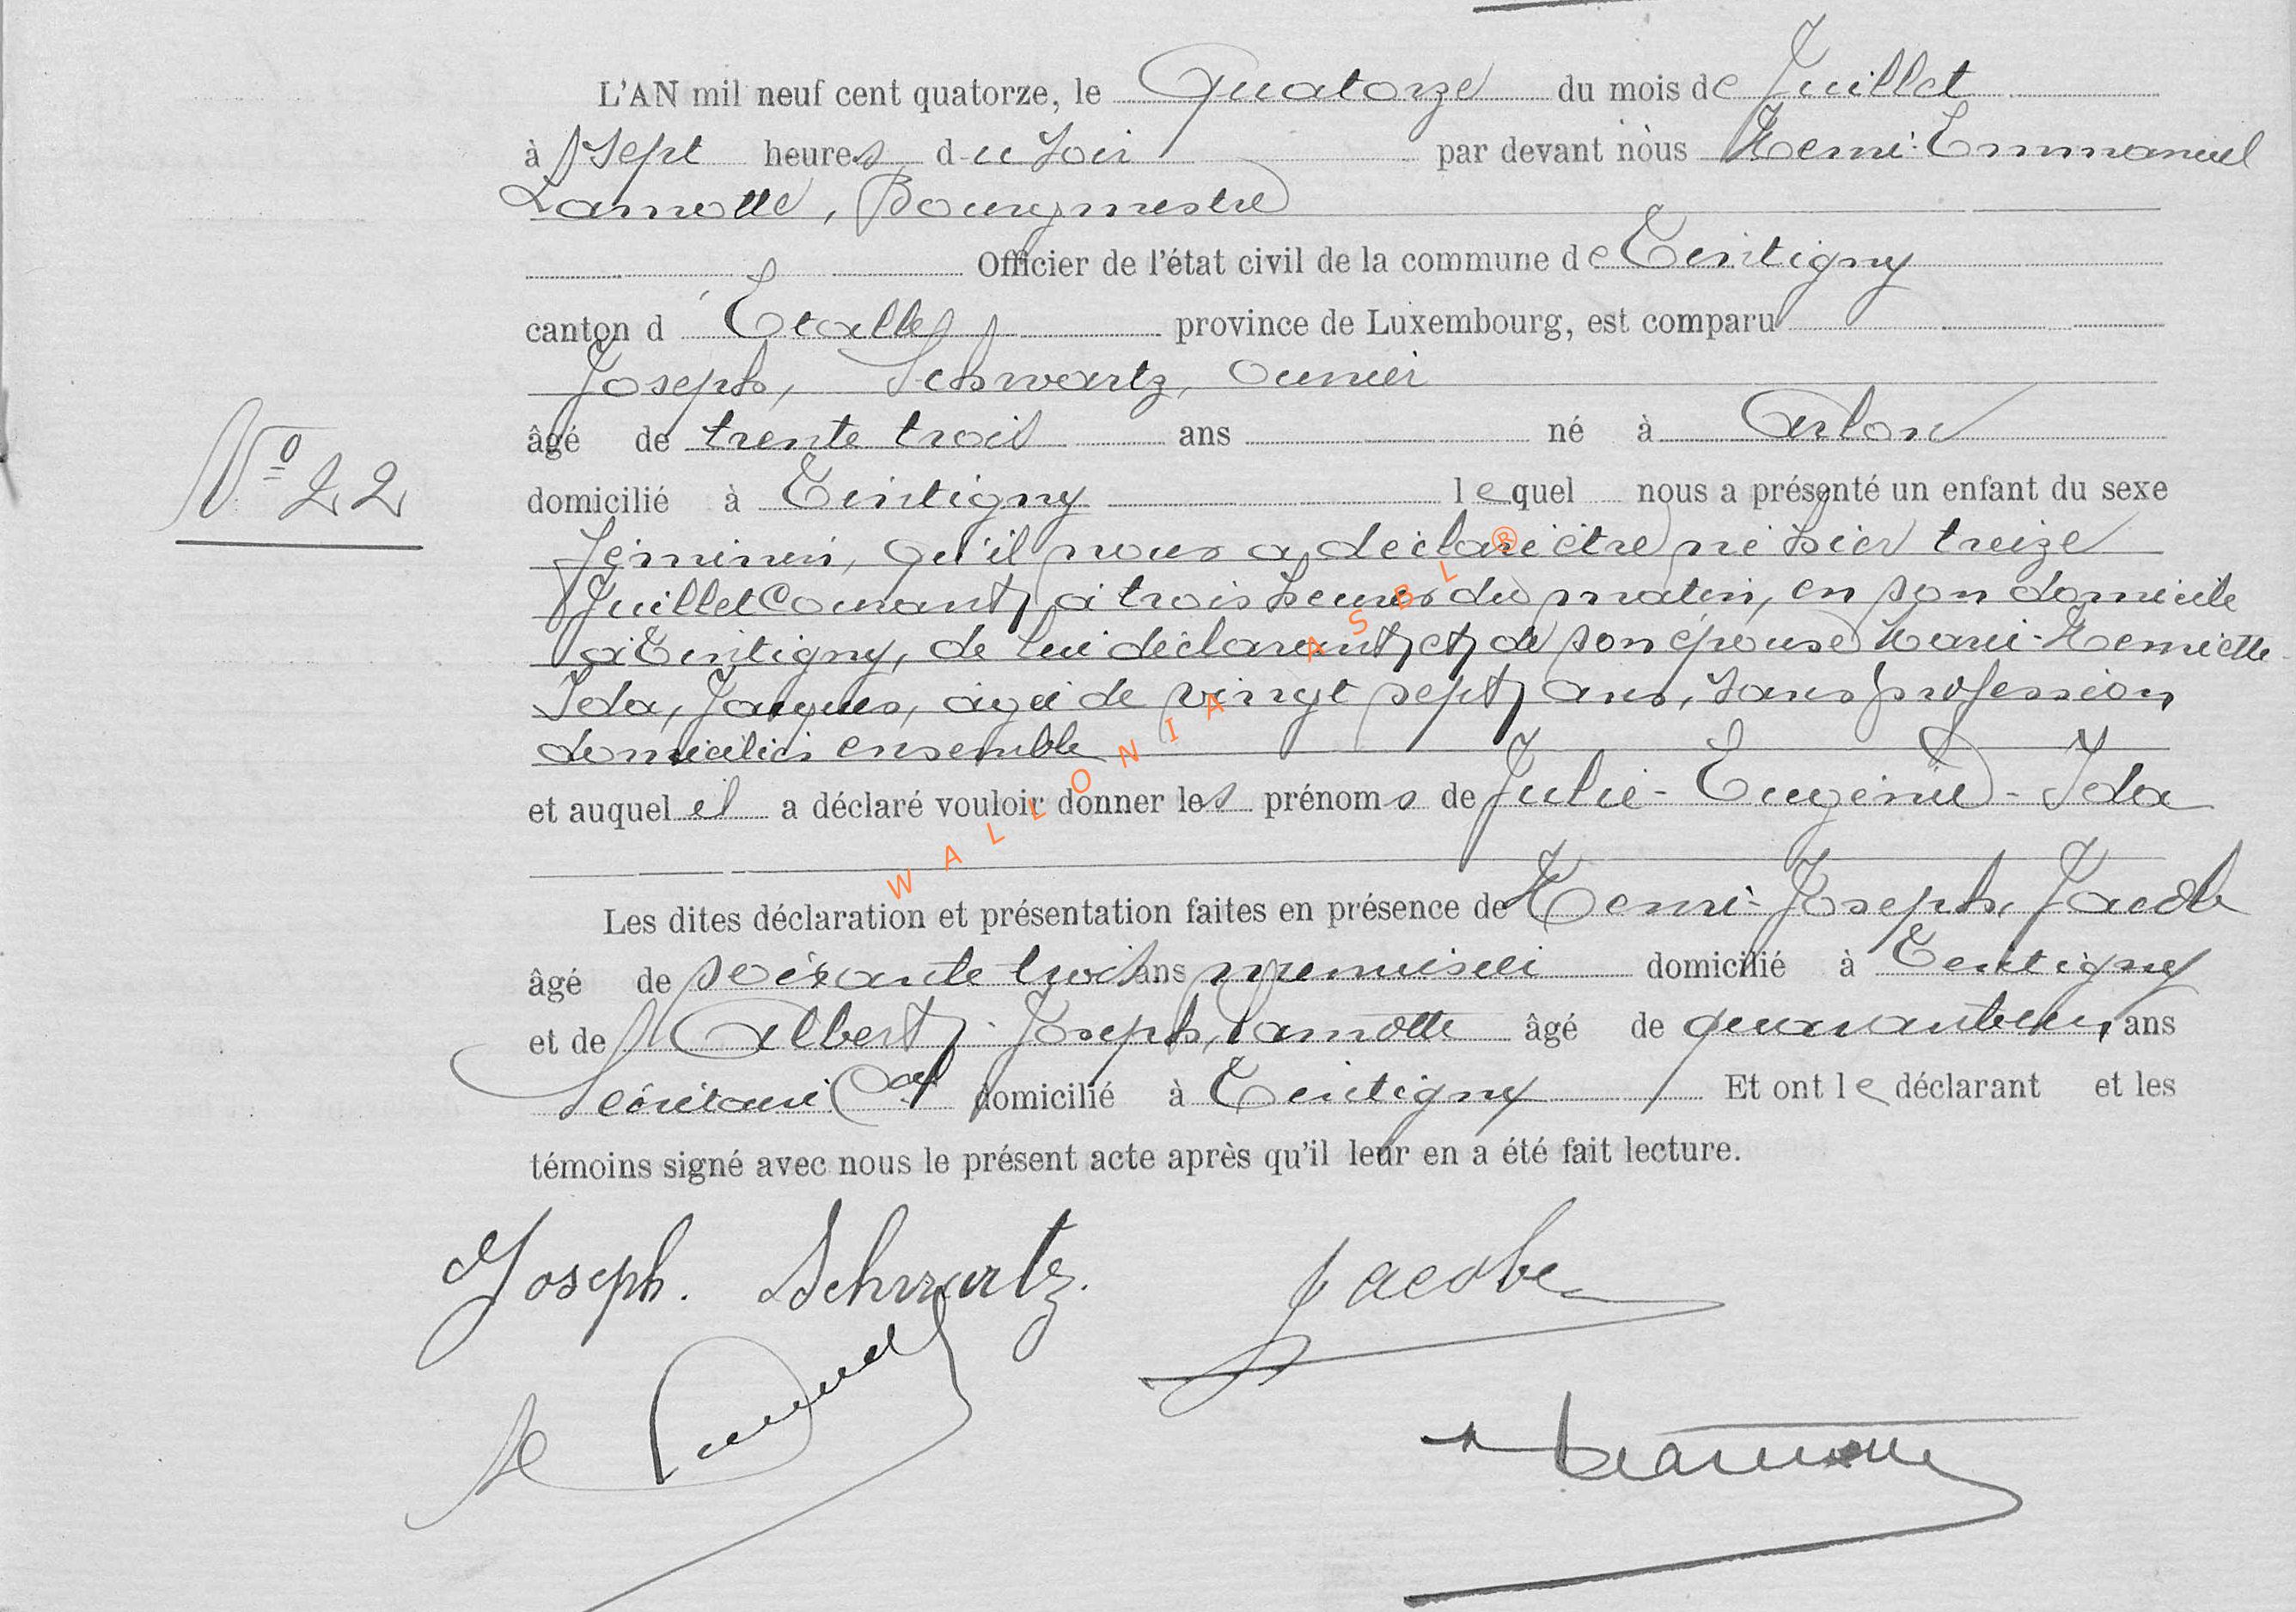 L'AN mil neuf cent quatorze, le Quatorze du mois de Juillet
à sept heures du soir par devant nous Henri-Emmanuel
Lamotte, Bourgmestre
Officier de l'état civil de la commune de Tintigny
canton d'Etalle province de Luxembourg, est comparu
Joseph, Schwartz, ouvrier
âgé de trente trois ans né à Arlon
N° 22
domicilié à Tintigny lequel nous a présenté un enfant du sexe
féminin, qu'il nous a déclaré être né hier treize
Juillet courant, à trois heures du matin, en son domicile
à Tintigny, de lui déclarant, et de son épouse Marie-Henriette
Ida, Jacques, âgée de vingt sept ans, sans profession,
domiciliés ensemble
et auquel il a déclaré vouloir donner les prénoms de Julie-Eugénie-Ida
Les dites déclaration et présentation faites en présence de Henri-Joseph, Jacob
âgé de soixante trois ans menuisier domicilié à Tintigny
et de Albert-Joseph, Lamotte âgé de quarante un ans
Secrétaire Cal domicilié à Tintigny Et ont le déclarant et les
témoins signé avec nous le présent acte après qu'il leur en a été fait lecture.
Joseph. Schwartz. Jacob
WALLONIA ASBL ®